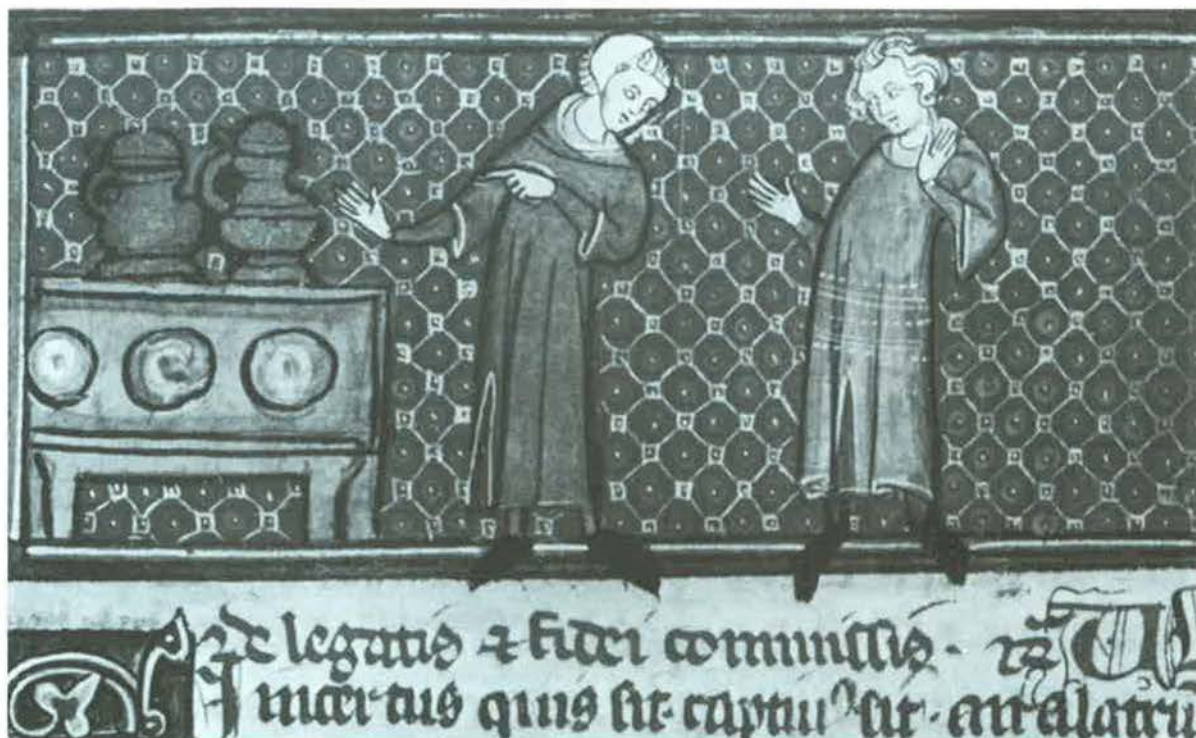 de legatis ⁊ fidei commissis·
incertus quis sit· captiuꝰ sit· an a latru